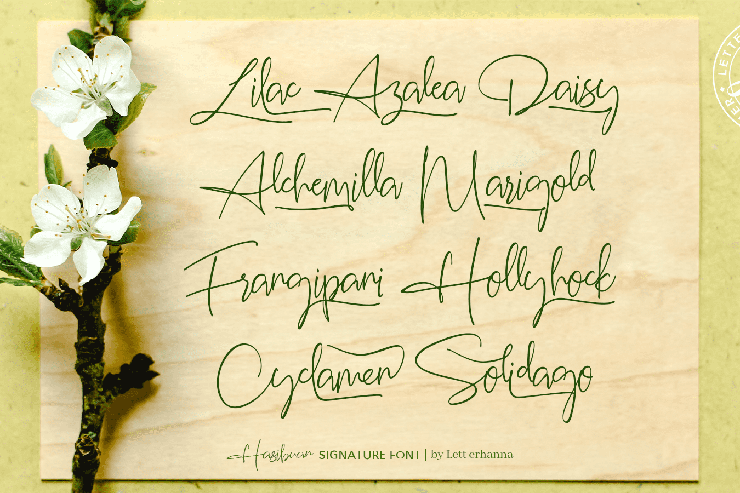 Lilac Azalea Daisy
Alchemilla Marigold
Frangipani Hollyhock
Cyclamen Solidago
Hasibuan SIGNATURE FONT | by Lett erhanna